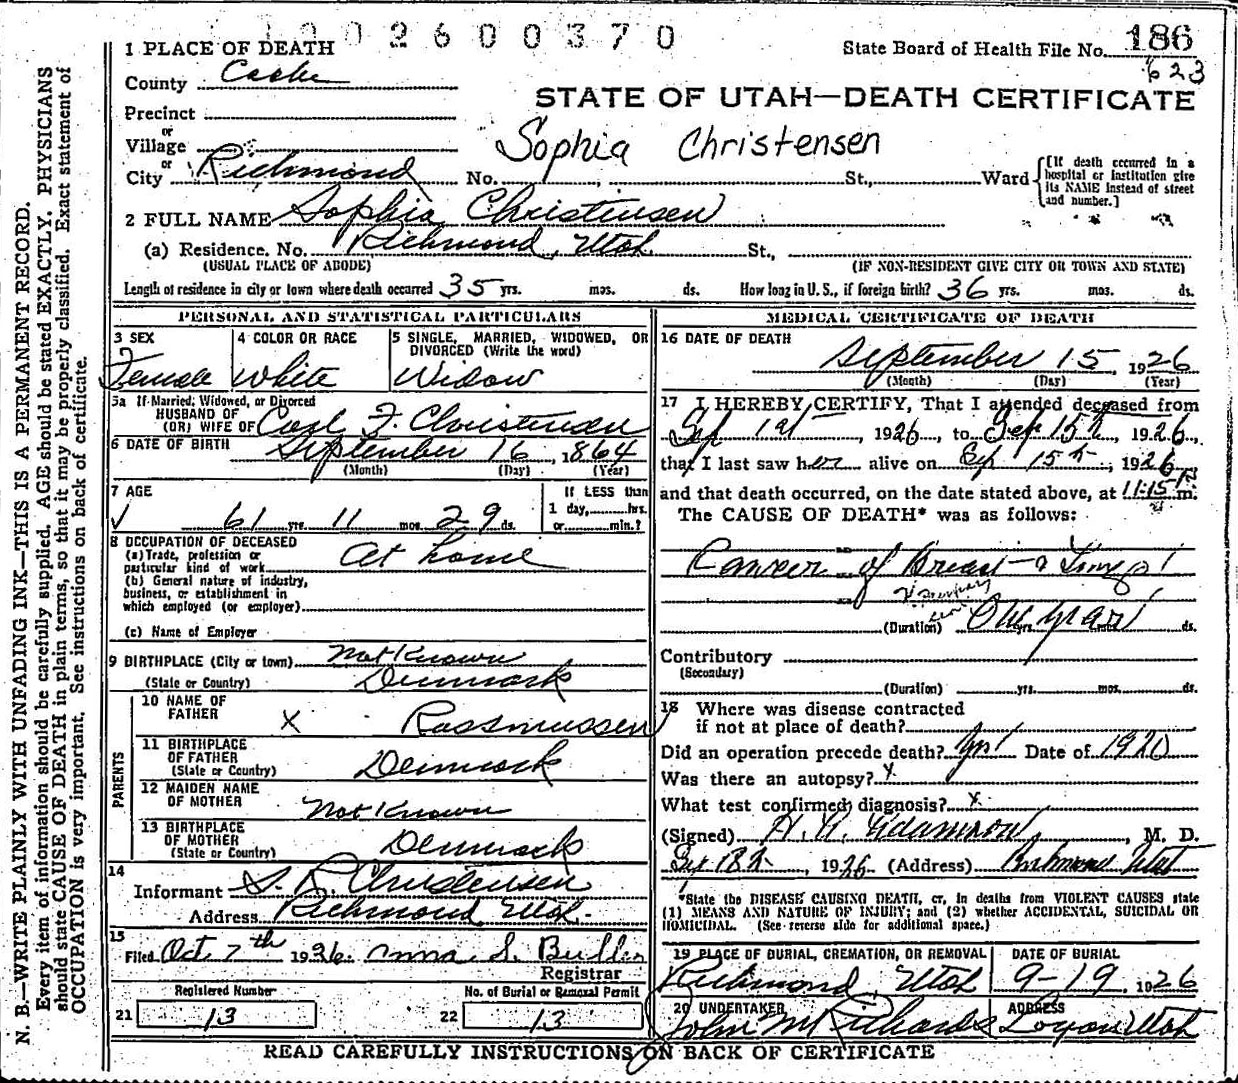 1002600370
1 PLACE OF DEATH
State Board of Health File No. 186
623
County Cache
STATE OF UTAH—DEATH CERTIFICATE
Precinct
or
Village
Sophia Christensen
or
City Richmond No. St., Ward
[If death occurred in a
hospital or institution give
its NAME instead of street
and number.]
2 FULL NAME Sophia Christensen
(a) Residence. No. Richmond, Utah St.,
(USUAL PLACE OF ABODE) (IF NON-RESIDENT GIVE CITY OR TOWN AND STATE)
Length of residence in city or town where death occurred 35 yrs. mos. ds. How long in U. S., if foreign birth? 36 yrs. mos. ds.
PERSONAL AND STATISTICAL PARTICULARS
3 SEX 4 COLOR OR RACE 5 SINGLE, MARRIED, WIDOWED, OR
DIVORCED (Write the word)
Female White Widow
5a If Married, Widowed, or Divorced
HUSBAND OF
(OR) WIFE OF Carl F. Christensen
6 DATE OF BIRTH September 16, 1864
(Month) (Day) (Year)
7 AGE If LESS than
1 day, hrs.
61 yrs. 11 mos. 29 ds. or min.?
8 OCCUPATION OF DECEASED
(a) Trade, profession or
particular kind of work At home
(b) General nature of industry,
business, or establishment in
which employed (or employer)
(c) Name of Employer
9 BIRTHPLACE (City or town) Not Known
(State or Country) Denmark
PARENTS
10 NAME OF
FATHER X Rassmussen
11 BIRTHPLACE
OF FATHER
(State or Country) Denmark
12 MAIDEN NAME
OF MOTHER Not Known
13 BIRTHPLACE
OF MOTHER
(State or Country) Denmark
14
Informant S. R. Christensen
Address Richmond, Utah.
15
Filed Oct 7th 1926 Anna S. Bullen
Registrar
Registered Number No. of Burial or Removal Permit
21 13 22 13
MEDICAL CERTIFICATE OF DEATH
16 DATE OF DEATH
September 15, 1926
(Month) (Day) (Year)
17 I HEREBY CERTIFY, That I attended deceased from
Sep 1st, 1926, to Sep 15th 1926,
that I last saw her alive on Sep 15th, 1926
and that death occurred, on the date stated above, at 11:15 m.
The CAUSE OF DEATH* was as follows:
Cancer of Breast & Lungs
(Duration) One year yrs. mos. ds.
Contributory
(Secondary)
(Duration) yrs. mos. ds.
18 Where was disease contracted
if not at place of death?
Did an operation precede death? Yes Date of 1920
Was there an autopsy? x
What test confirmed diagnosis? x
(Signed) H. A. Adamson, M. D.
Sep 18th, 1926 (Address) Richmond Utah
*State the DISEASE CAUSING DEATH, or, in deaths from VIOLENT CAUSES state
(1) MEANS AND NATURE OF INJURY; and (2) whether ACCIDENTAL, SUICIDAL OR
HOMICIDAL. (See reverse side for additional space.)
19 PLACE OF BURIAL, CREMATION, OR REMOVAL DATE OF BURIAL
Richmond, Utah 9-19 1926
20 UNDERTAKER ADDRESS
John M Richards Logan Utah
READ CAREFULLY INSTRUCTIONS ON BACK OF CERTIFICATE
N. B.—WRITE PLAINLY WITH UNFADING INK—THIS IS A PERMANENT RECORD.
Every item of information should be carefully supplied. AGE should be stated EXACTLY. PHYSICIANS
should state CAUSE OF DEATH in plain terms, so that it may be properly classified. Exact statement of
OCCUPATION is very important. See instructions on back of certificate.